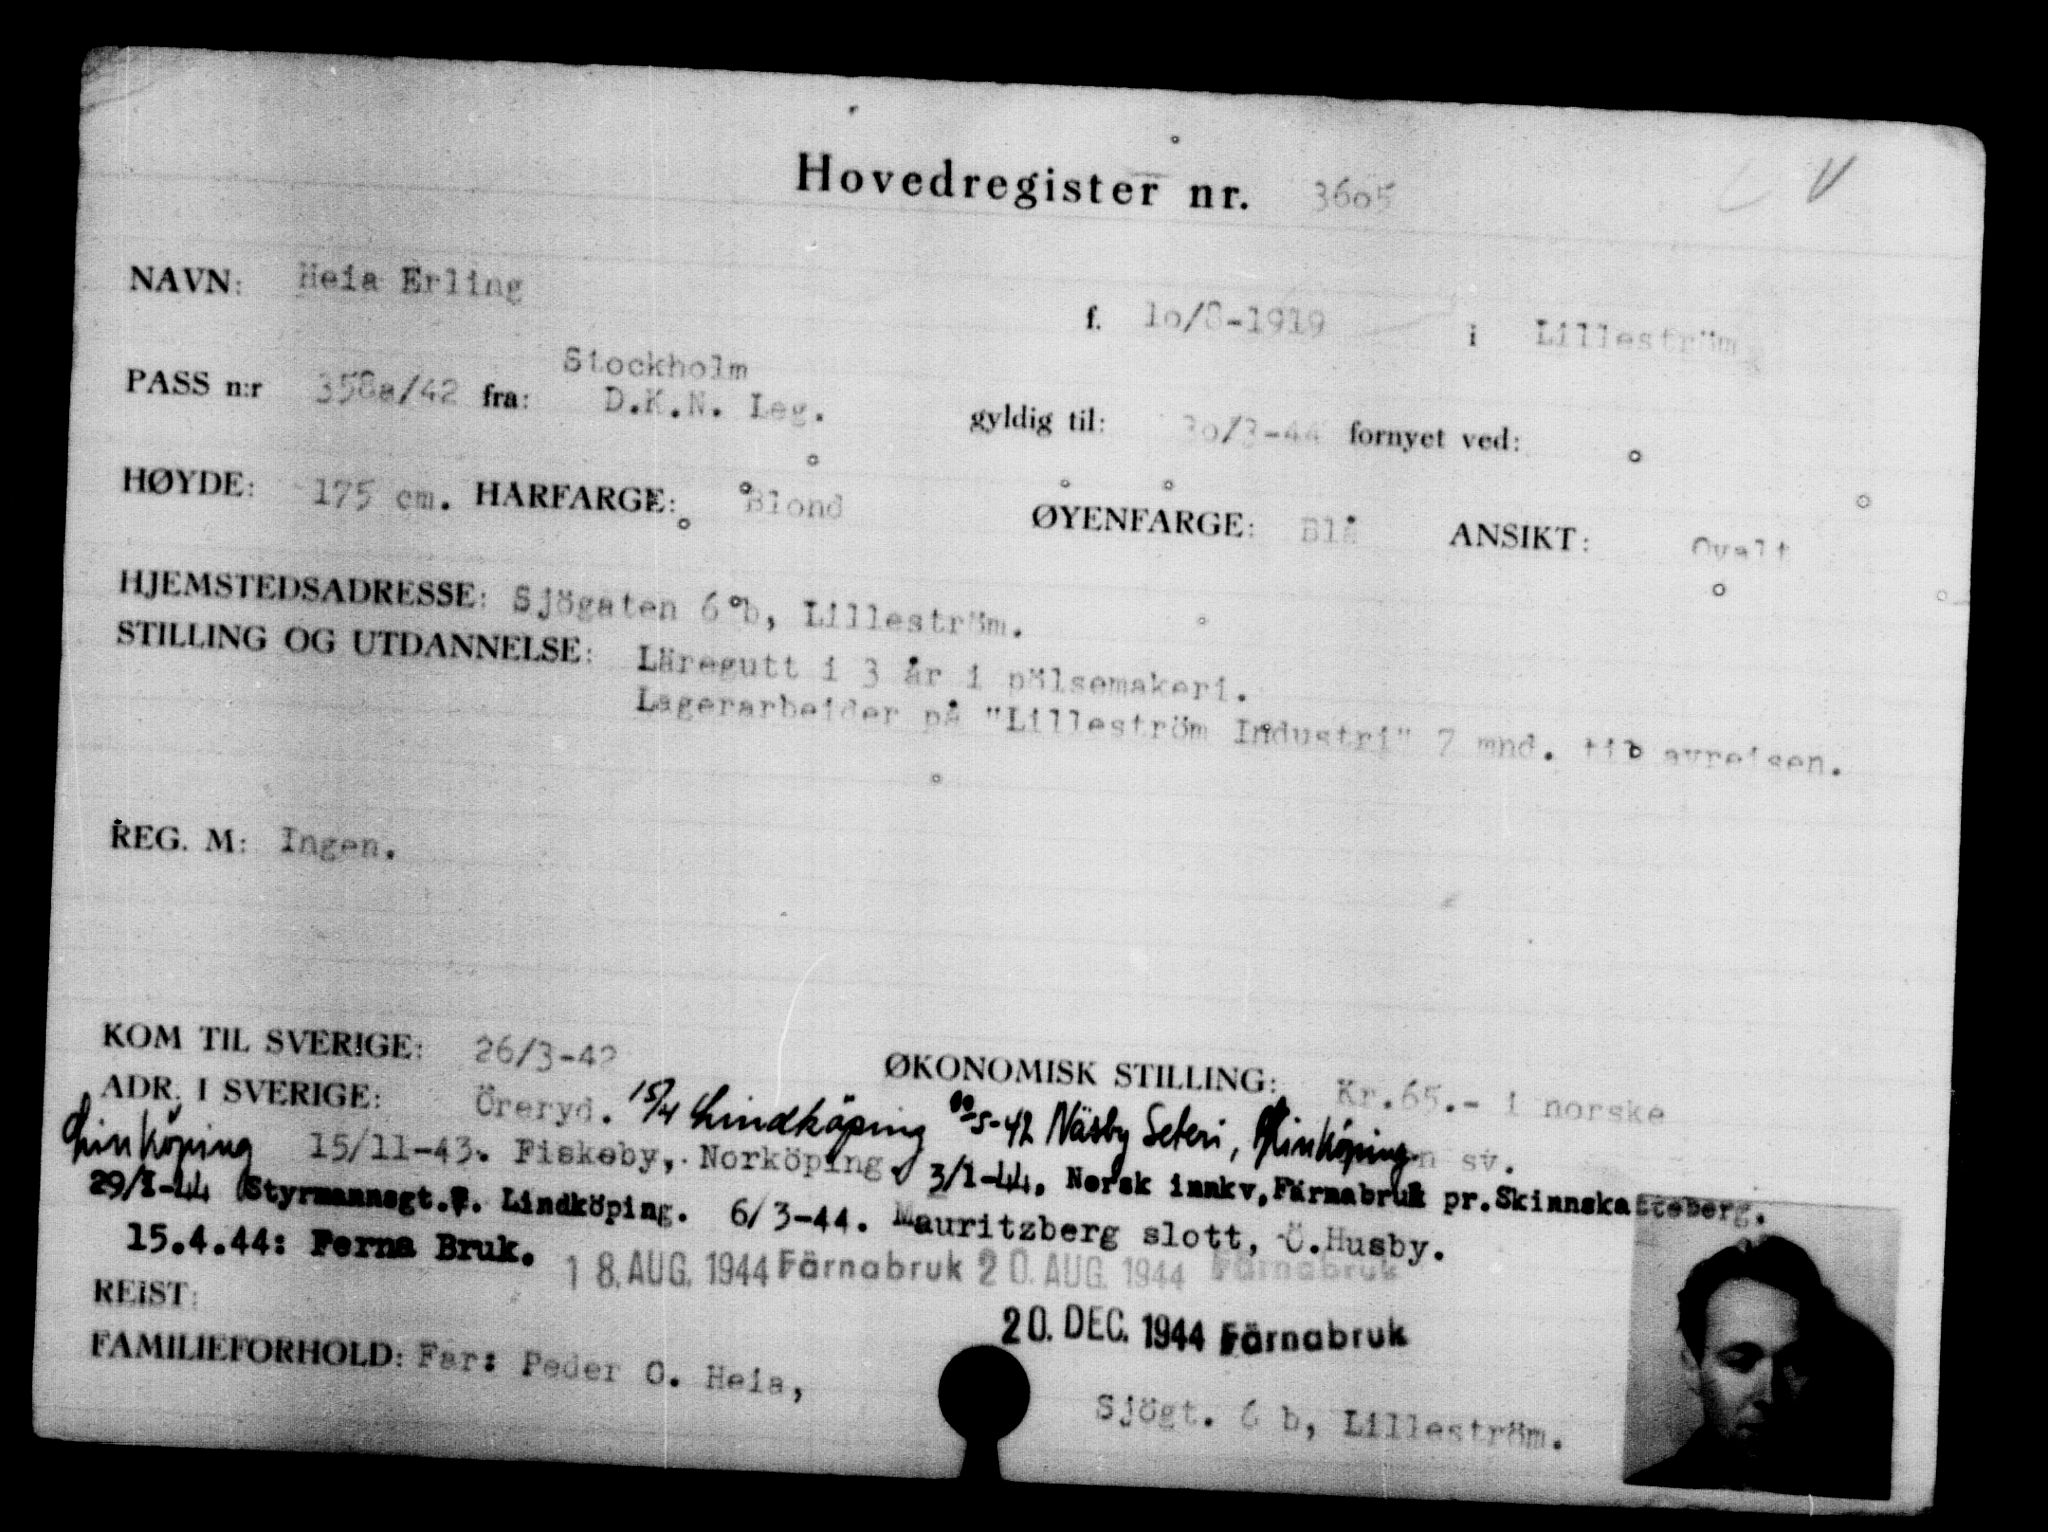 Hovedregister nr. 3605
NAVN: Heia Erling f. 1o/8-1919 i Lilleström
PASS n:r 358a/42 fra: Stockholm D.K.N. Leg. gyldig til: 3o/3-44 fornyet ved:
HØYDE: 175 cm. HARFARGE: Blond ØYENFARGE: Blå ANSIKT: Ovalt
HJEMSTEDSADRESSE: Sjögaten 6 b, Lilleström.
STILLING OG UTDANNELSE: Läregutt i 3 år i pölsemakeri.
Lagerarbeider på "Lilleström Industri" 7 mnd. til avreisen.
REG. M: Ingen.
KOM TIL SVERIGE: 26/3-42 ØKONOMISK STILLING: Kr.65.- i norske
ADR. I SVERIGE: Öreryd. 15/4 Lindköping 5-42 Näsby Seteri, Linköping sv.
Linköping 15/11-43. Fiskeby, Norköping. 3/1-44. Norsk innkv, Färnabruk pr. Skinnskatteberg.
29/I-44 Styrmannsgt. Lindköping. 6/3-44. Mauritzberg slott, Ö.Husby.
15.4.44: Ferna Bruk. 18. AUG. 1944 Färnabruk 20. AUG. 1944 Färnabruk
REIST: 20. DEC. 1944 Färnabruk
FAMILIEFORHOLD: Far: Peder O. Heia,
Sjögt. 6 b, Lilleström.